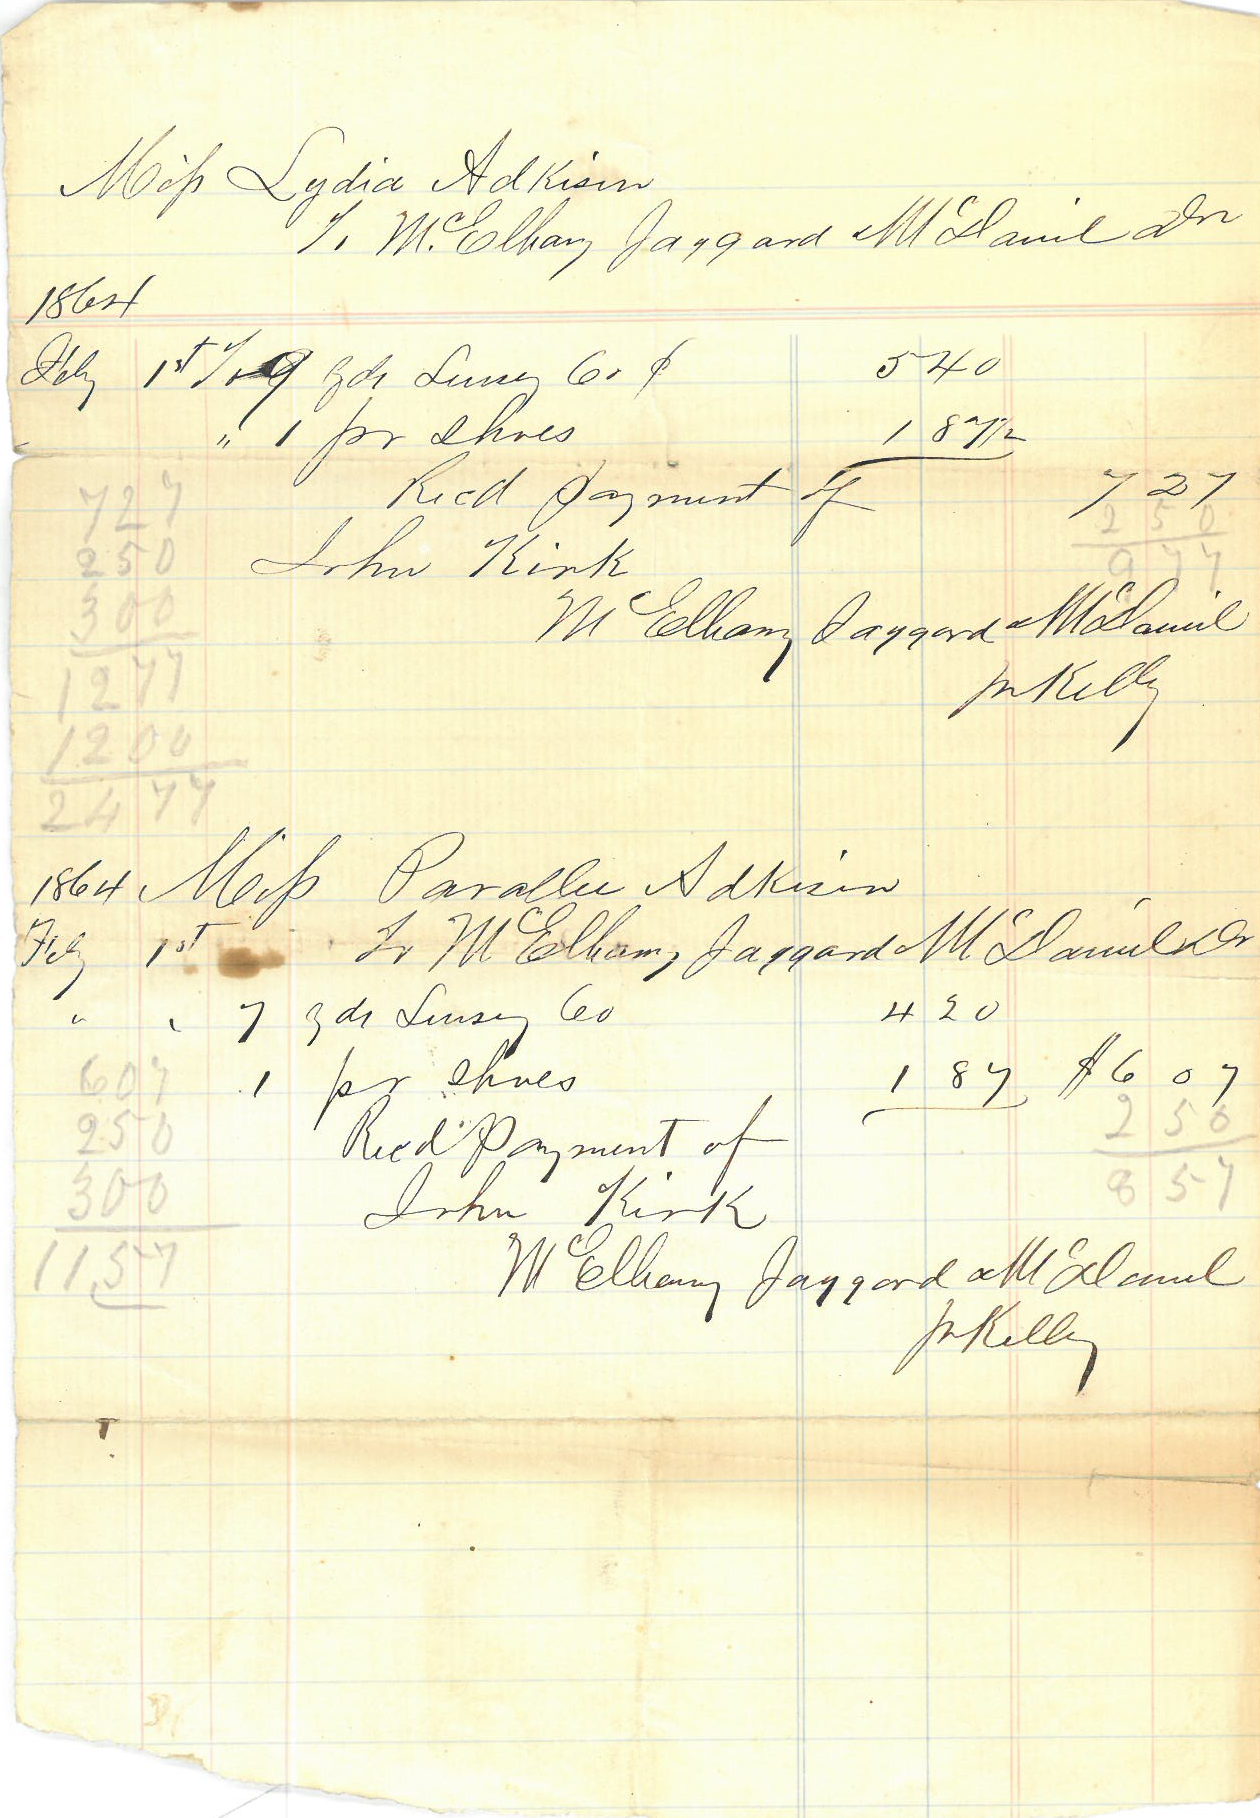 Miss Lydia Adkison
To McElhany Jaggard & McDaniel Dr
1864
Feby 1st To 9 yds Linsey 60 ¢ 5 40
" 1 pr Shoes 1 87 1/2
Recd Payment of 7 27
2 50
9 77
John Kirk
McElhany Jaggard & McDaniel
pr Kelly
727
250
300
1277
1200
2477
1864 Miss Parallee Adkison
Feby 1st To McElhany Jaggard & McDaniel Dr
" " 7 yds Linsey 60 4 20
1 pr Shoes 1 87 $6 07
2 50
8 57
Recd Payment of
John Kirk
McElhany Jaggard & McDaniel
pr Kelly
607
250
300
1157